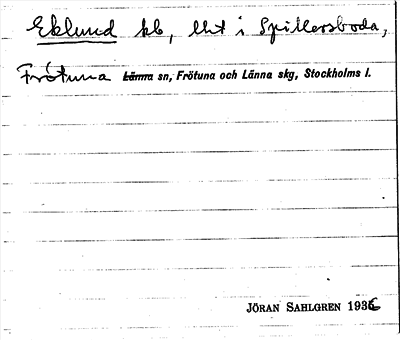 Eklund kb, lht i Spillersboda,
Frötuna Länna sn, Frötuna och Länna skg, Stockholms l.
JÖRAN SAHLGREN 1936